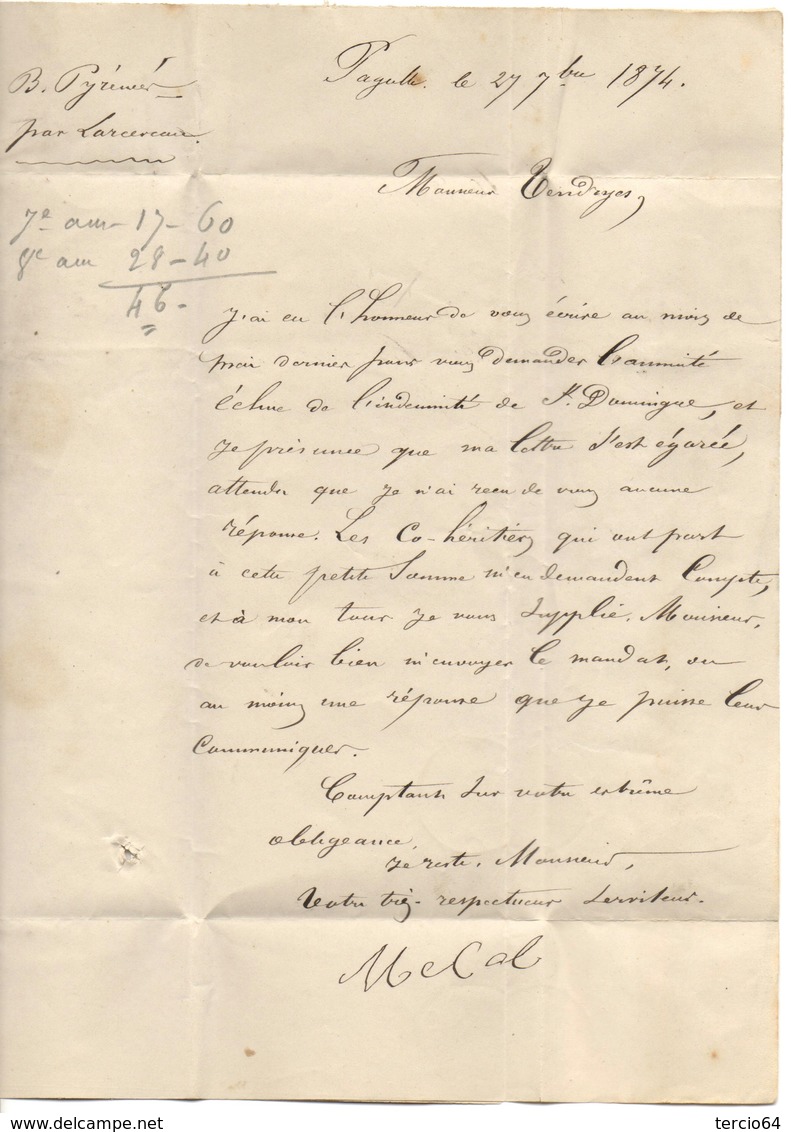 B. Pyrénées
par Larceveau.
Pagolle le 27 7bre 1874.
Monsieur
7e am - 17 - 60
8e am 28 - 40
46 -
J'ai eu l'honneur de vous écrire au mois de
mai dernier pour vous demander l'annuité
échue de l'indemnité de St. Domingue, et
je présume que ma lettre s'est égarée,
attendu que je n'ai reçu de vous aucune
réponse. Les co-héritiers qui ont part
à cette petite somme m'en demandent Compte,
et à mon tour je vous supplie, Monsieur,
de vouloir bien m'envoyer le mandat, ou
au moins une réponse que je puisse leur
communiquer.
Comptant sur votre extrême
obligeance,
je reste, Monsieur,
Votre très-respectueux serviteur.
delcampe.net
tercio64